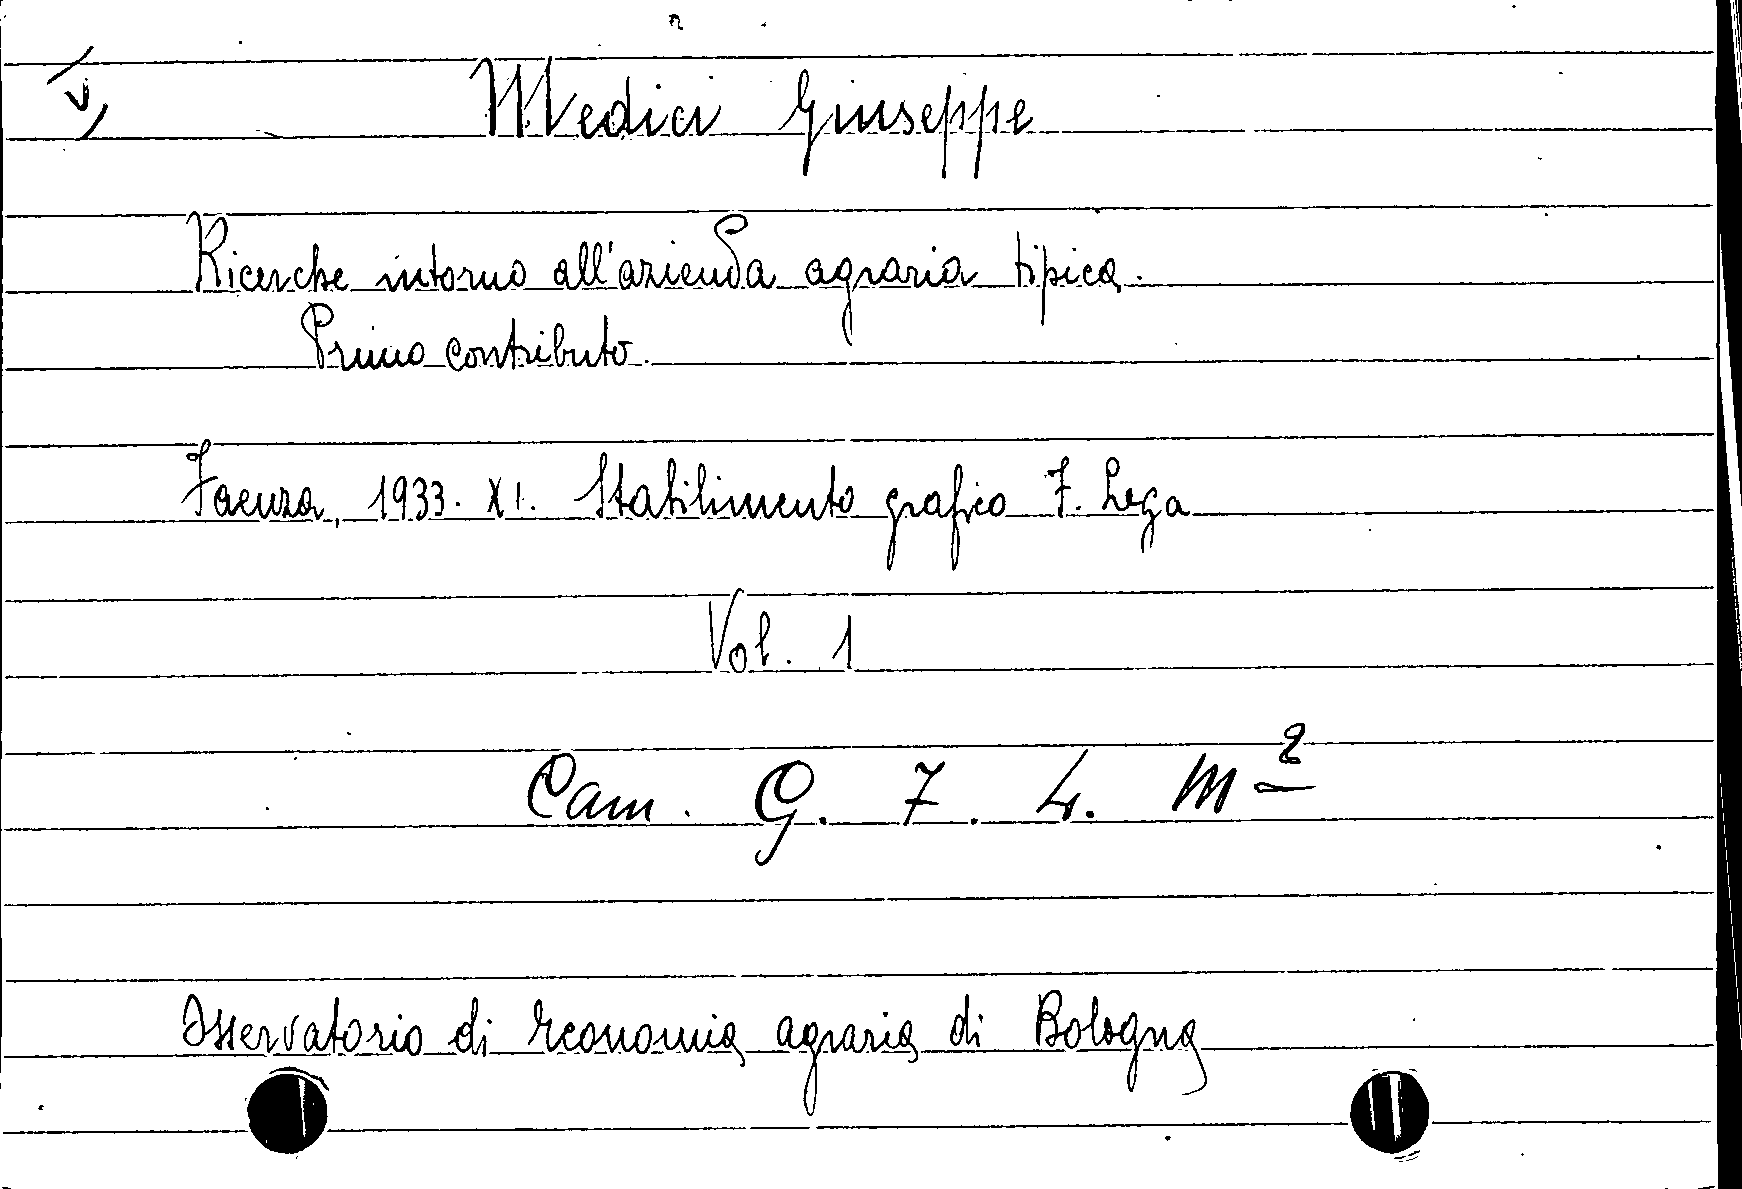 Medici Giuseppe
Ricerche intorno all'azienda agraria tipica.
Primo contributo.
Faenza, 1933. XI. Stabilimento grafico F. Lega
Vol. 1
Cam. G. 7. 4. m²
Osservatorio di Economia agraria di Bologna